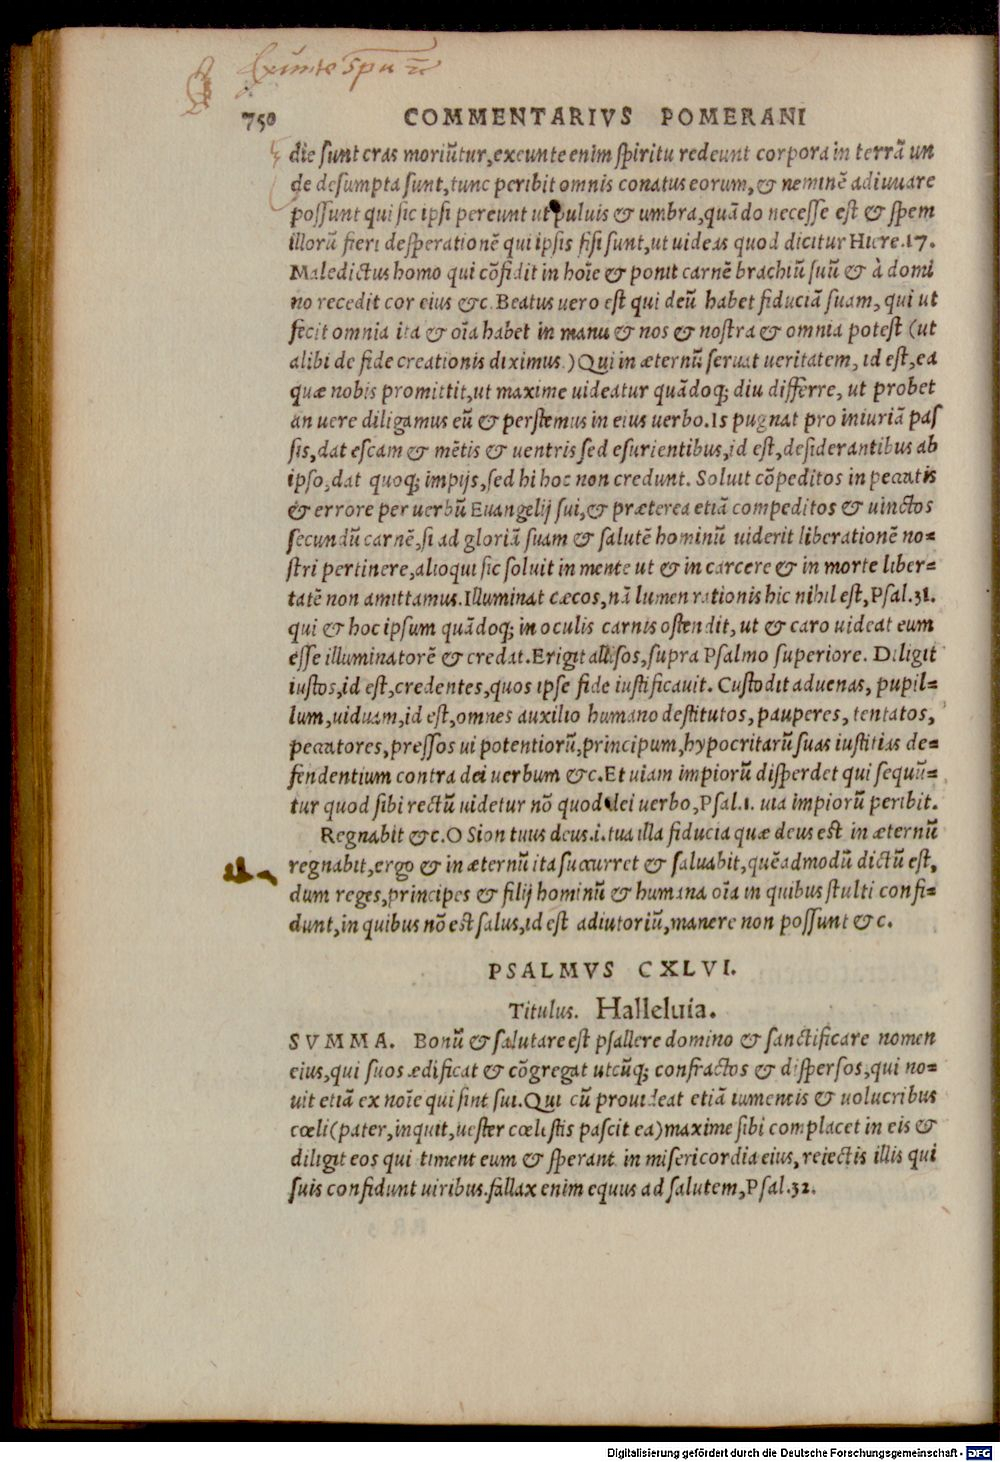 750 COMMENTARIVS POMERANI
die ſunt cras moriũtur, exeunte enim ſpiritu redeunt corpora in terrã un
de deſumpta ſunt, tunc peribit omnis conatus eorum, & neminẽ adiuuare
poſſunt qui ſic ipſi pereunt ut puluis & umbra, quãdo neceſſe eſt & ſpem
illorũ fieri deſperationẽ qui ipſis fiſi ſunt, ut uideas quod dicitur Hiere.17.
Maledictus homo qui cõfidit in hoĩe & ponit carnẽ brachiũ ſuũ & à domi
no recedit cor eius &c. Beatus uero eſt qui deũ habet fiduciã ſuam, qui ut
fecit omnia ita & oĩa habet in manu & nos & noſtra & omnia poteſt (ut
alibi de fide creationis diximus.) Qui in æternũ ſeruat ueritatem, id eſt, ea
quæ nobis promittit, ut maxime uideatur quãdoq; diu differre, ut probet
an uere diligamus eũ & perſtemus in eius uerbo. Is pugnat pro iniuriã paſ
ſis, dat eſcam & mẽtis & uentris ſed eſurientibus, id eſt, deſiderantibus ab
ipſo, dat quoq; impijs, ſed hi hoc non credunt. Soluit cõpeditos in peccatis
& errore per uerbũ Euangelij ſui, & præterea etiã compeditos & uinctos
ſecundũ carnẽ, ſi ad gloriã ſuam & ſalutẽ hominũ uiderit liberationẽ no=
ſtri pertinere, alioqui ſic ſoluit in mente ut & in carcere & in morte liber=
tatẽ non amittamus. Illuminat cæcos, nã lumen rationis hic nihil eſt, Pſal.31.
qui & hoc ipſum quãdoq; in oculis carnis oſtendit, ut & caro uideat eum
eſſe illuminatorẽ & credat. Erigit alliſos, ſupra Pſalmo ſuperiore. Diligit
iuſtos, id eſt, credentes, quos ipſe fide iuſtificauit. Cuſtodit aduenas, pupil=
lum, uiduam, id eſt, omnes auxilio humano deſtitutos, pauperes, tentatos,
peccatores, preſſos ui potentiorũ, principum, hypocritarũ ſuas iuſtitias de=
fendentium contra dei uerbum &c. Et uiam impiorũ diſperdet qui ſequũ=
tur quod ſibi rectũ uidetur nõ quod dei uerbo, Pſal.1. uia impiorũ peribit.
Regnabit &c. O Sion tuus deus.i. tua illa fiducia quæ deus eſt in æternũ
regnabit, ergo & in æternũ ita ſuccurret & ſaluabit, quẽadmodũ dictũ eſt,
dum reges, principes & filij hominũ & humana oĩa in quibus ſtulti confi=
dunt, in quibus nõ eſt ſalus, id eſt adiutoriũ, manere non poſſunt &c.
PSALMVS CXLVI.
Titulus. Halleluia.
SVMMA. Bonũ & ſalutare eſt pſallere domino & ſanctificare nomen
eius, qui ſuos ædificat & cõgregat utcũq; confractos & diſperſos, qui no=
uit etiã ex noĩe qui ſint ſui. Qui cũ prouideat etiã iumentis & uolucribus
cœli (pater, inquit, ueſter cœleſtis paſcit ea) maxime ſibi complacet in eis &
diligit eos qui timent eum & ſperant in miſericordia eius, reiectis illis qui
ſuis confidunt uiribus. fallax enim equus ad ſalutem, Pſal.32.
Digitalisierung gefördert durch die Deutsche Forschungsgemeinschaft - DFG